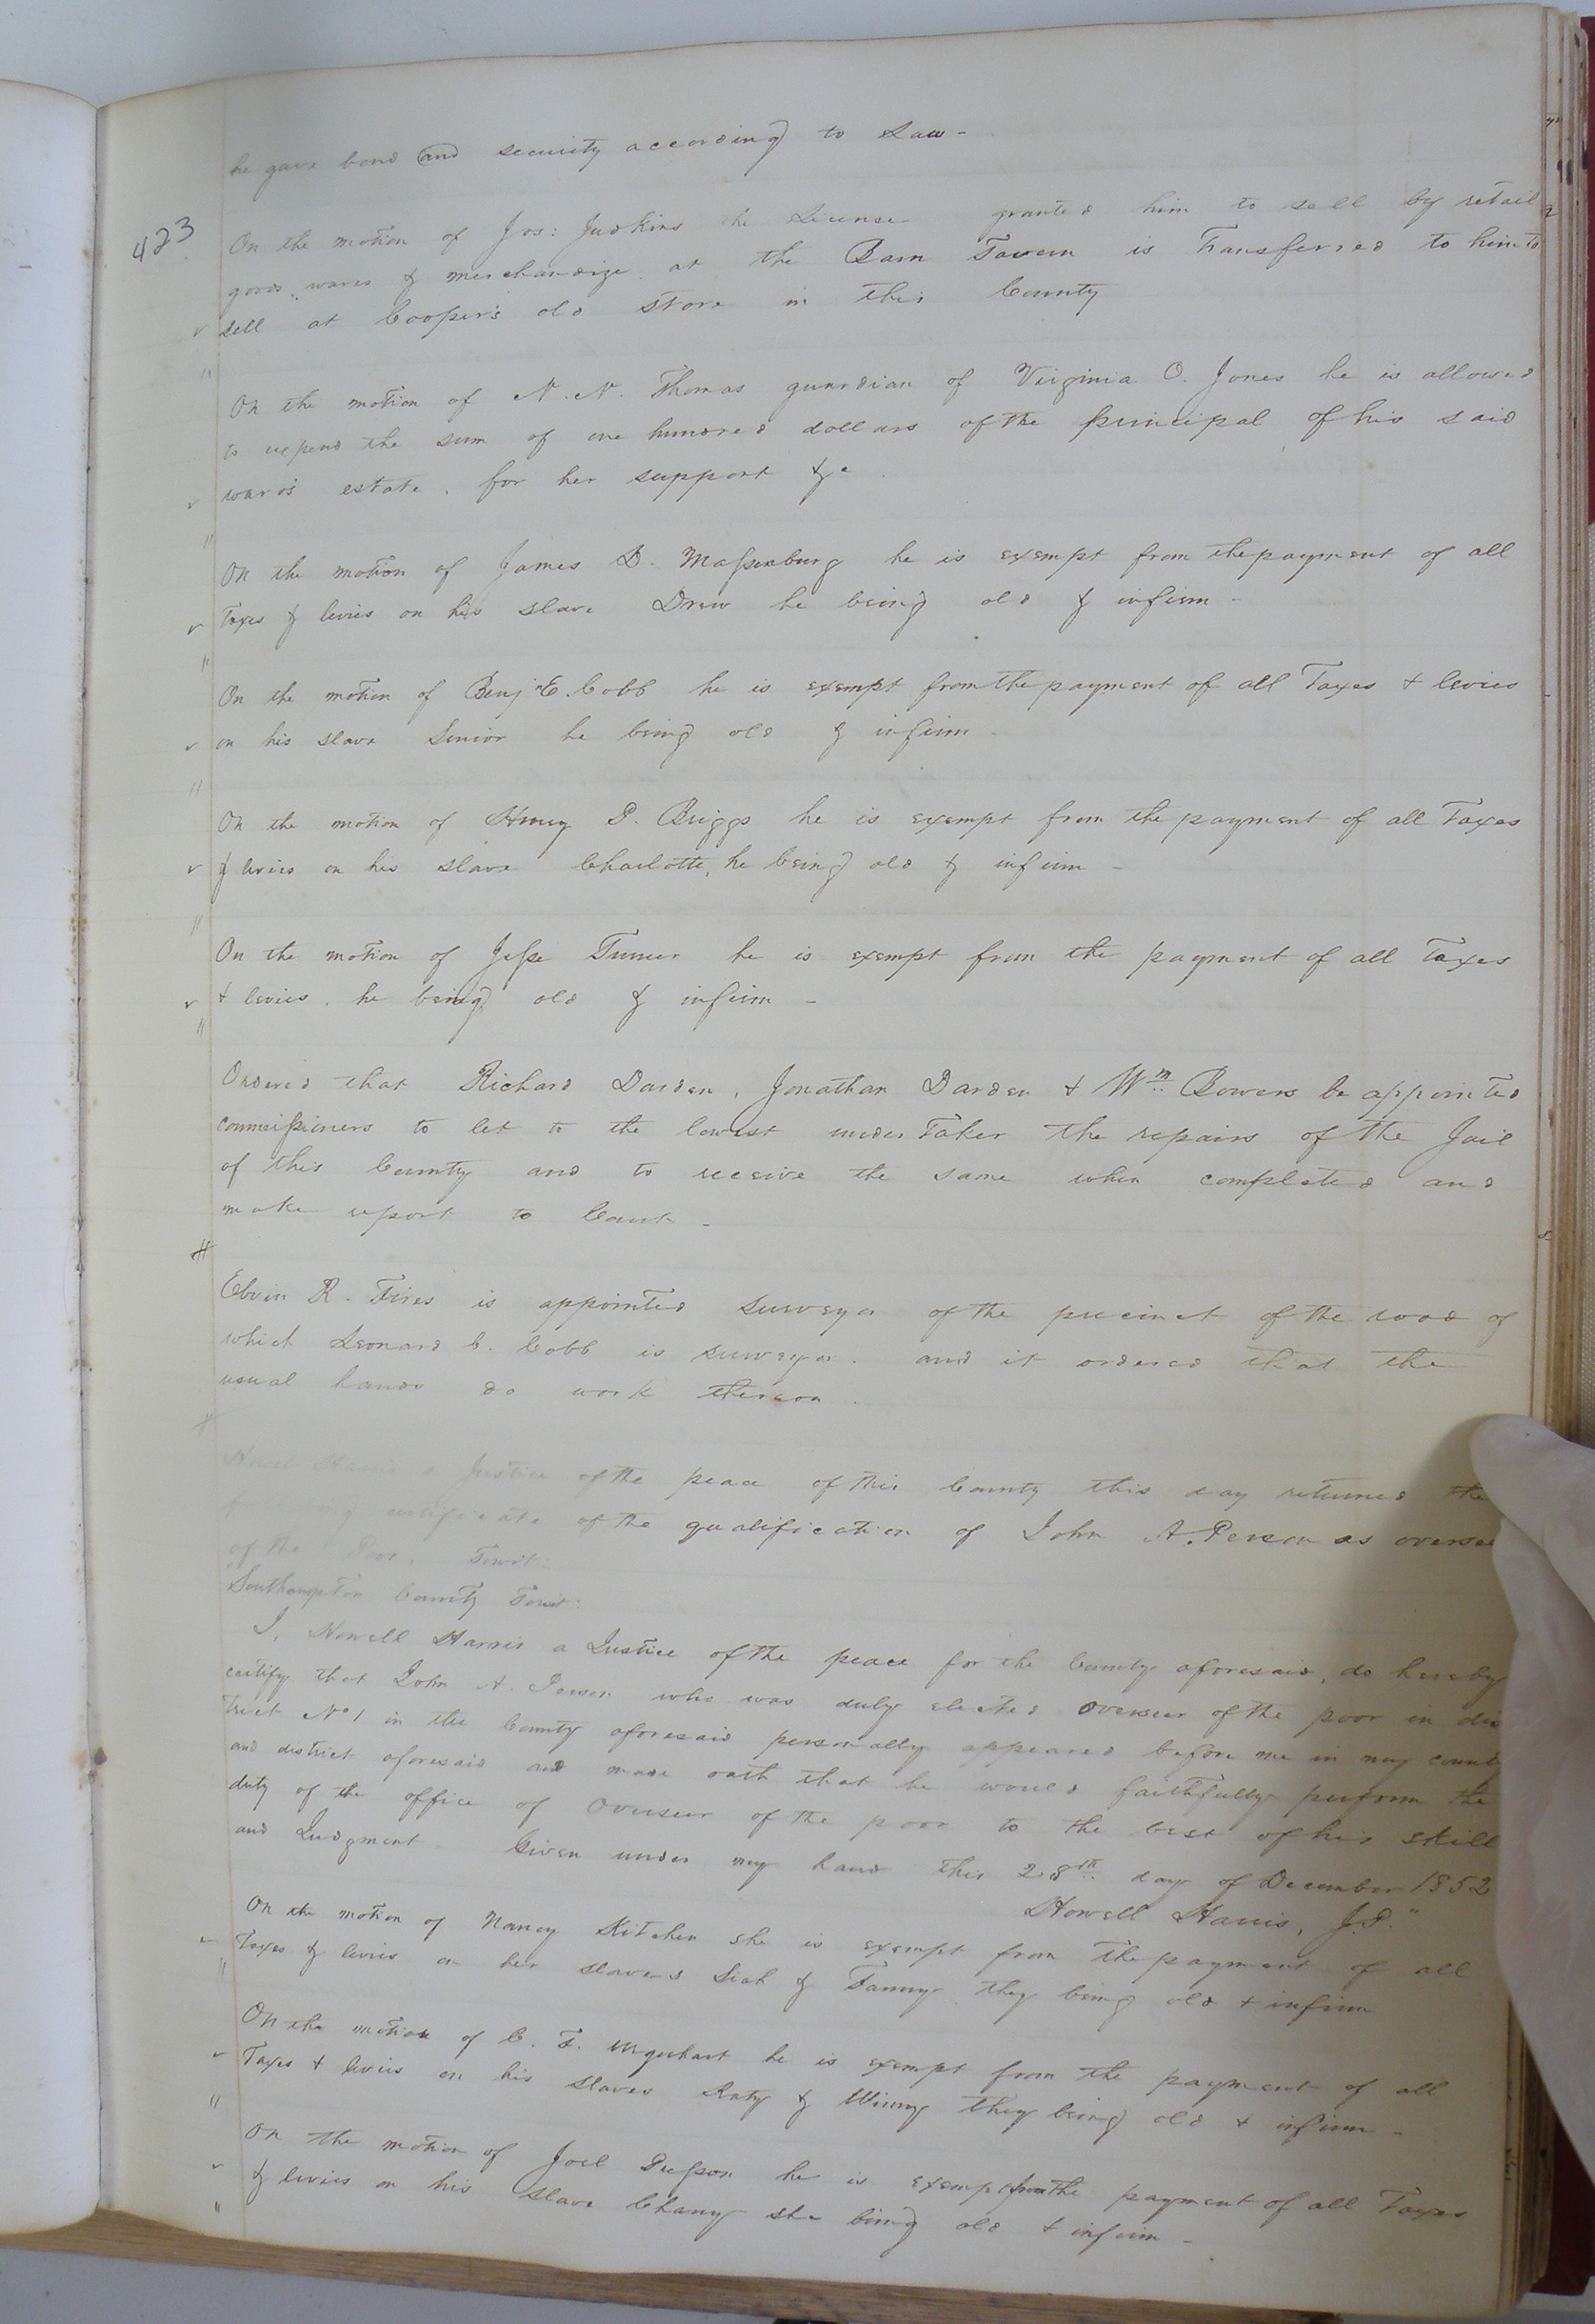 he gave bond and security according to Law -
423
On the motion of Jos: Judkins the License granted him to sell by retail
goods, wares & merchandize at the Barn Tavern is Transferred to him to
sell at Cooper's old store in this County
On the motion of N. N. Thomas guardian of Virginia O. Jones he is allowed
to expend the sum of one hundred dollars of the principal of his said
ward's estate, for her support &c
On the motion of James D. Massenburg he is exempt from the payment of all
Taxes & levies on his slave Drew he being old & infirm -
On the motion of Benj E. Cobb he is exempt from the payment of all Taxes + levies
on his slave Senior he being old & infirm
On the motion of Henry P. Briggs he is exempt from the payment of all Taxes
& levies on his slave Charlotte, he being old & infirm -
On the motion of Jesse Turner he is exempt from the payment of all Taxes
+ levies, he being old & infirm -
Ordered that Richard Darden, Jonathan Darden + Wm Bowers be appointed
commissioners to let to the lowest under Taker the repairs of the Jail
of this County and to receive the same when completed and
make report to Court -
R. is appointed Surveyor of the precinct of the road of
which Leonard C. Cobb is surveyor. and it ordered that the
usual hands do work thereon.
Harris a Justice of the peace of this County this day returned the
certificate of the qualification of John A. Person as overseer
of the Poor, Towit:
Southampton County Towit:
I, Howell Harris a Justice of the peace for the County aforesaid, do hereby
certify that John A. Person who was duly elected Overseer of the poor in dis
trict No 1 in the County aforesaid personally appeared before me in my county
and district aforesaid and made oath that he would faithfully perform the
duty of the office of Overseer of the poor to the best of his skill
and Judgment. Given under my hand this 28th day of December 1852
Howell Harris, J.P."
On the motion of Nancy Kitchen she is exempt from the payment of all
Taxes & levies on her slaves & Fanny they being old + infirm
On the motion of C. F. Urquhart he is exempt from the payment of all
Taxes + levies on his slaves Katy & Winny they being old + infirm -
On the motion of Joel he is exempt from the payment of all Taxes
& levies on his slave Chany she being old + infirm -